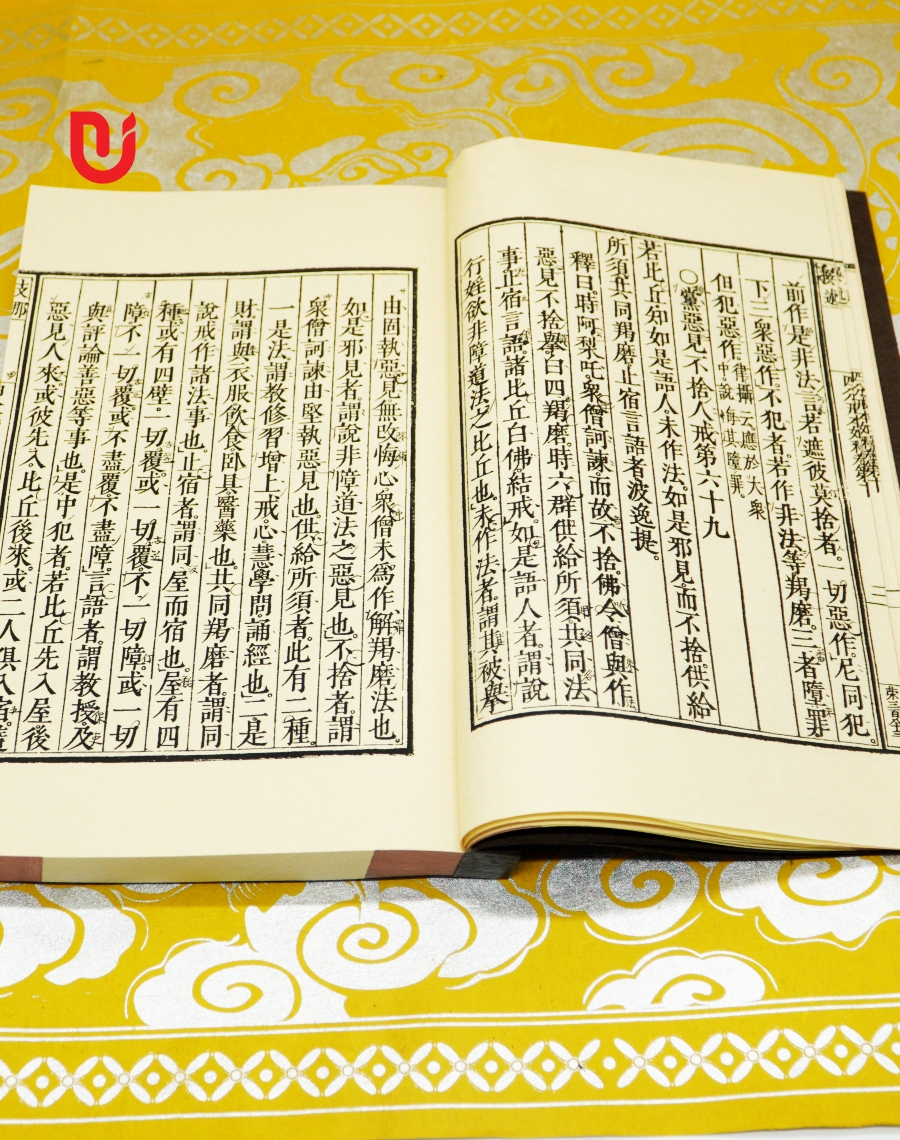 前作是非法言若遮彼莫捨者。一切惡作。尼同犯。
下三衆惡作。不犯者。若作非法等羯磨。三者障罪
但犯惡作 律攝云應於大衆中說悔其障罪
○黨惡見不捨人戒第六十九
若比丘知如是語人。未作法。如是邪見。而不捨。供給
所須。共同羯磨。止宿言語者。波逸提。
釋曰。時阿梨吒。衆僧訶諫。而故不捨。佛令僧與作
惡見不捨擧白四羯磨。時六群供給所須。共同法
事。止宿言語。諸比丘白佛。結戒。如是語人者。謂說
行婬欲非障道法之比丘也。未作法者。謂其被擧
由固執惡見。無改悔心。衆僧未爲作解羯磨法也。
如是邪見者。謂說非障道法之惡見也。不捨者。謂
衆僧訶諫。由堅執惡見也。供給所須者。此有二種。
一是法。謂教修習增上戒。心慧學問誦經也。二是
財。謂與衣服飲食。臥具醫藥也。共同羯磨者。謂同
說戒。作諸法事也。止宿者。謂同屋而宿也。屋有四
種。或有四壁。一切覆。或一切覆。不一切障。或一切
障。不一切覆。或不盡覆。不盡障。言語者。謂教授。及
與評論善惡等事也。是中犯者。若比丘先入屋。後
惡見人來。或彼先入。比丘後來。或二人俱入宿。